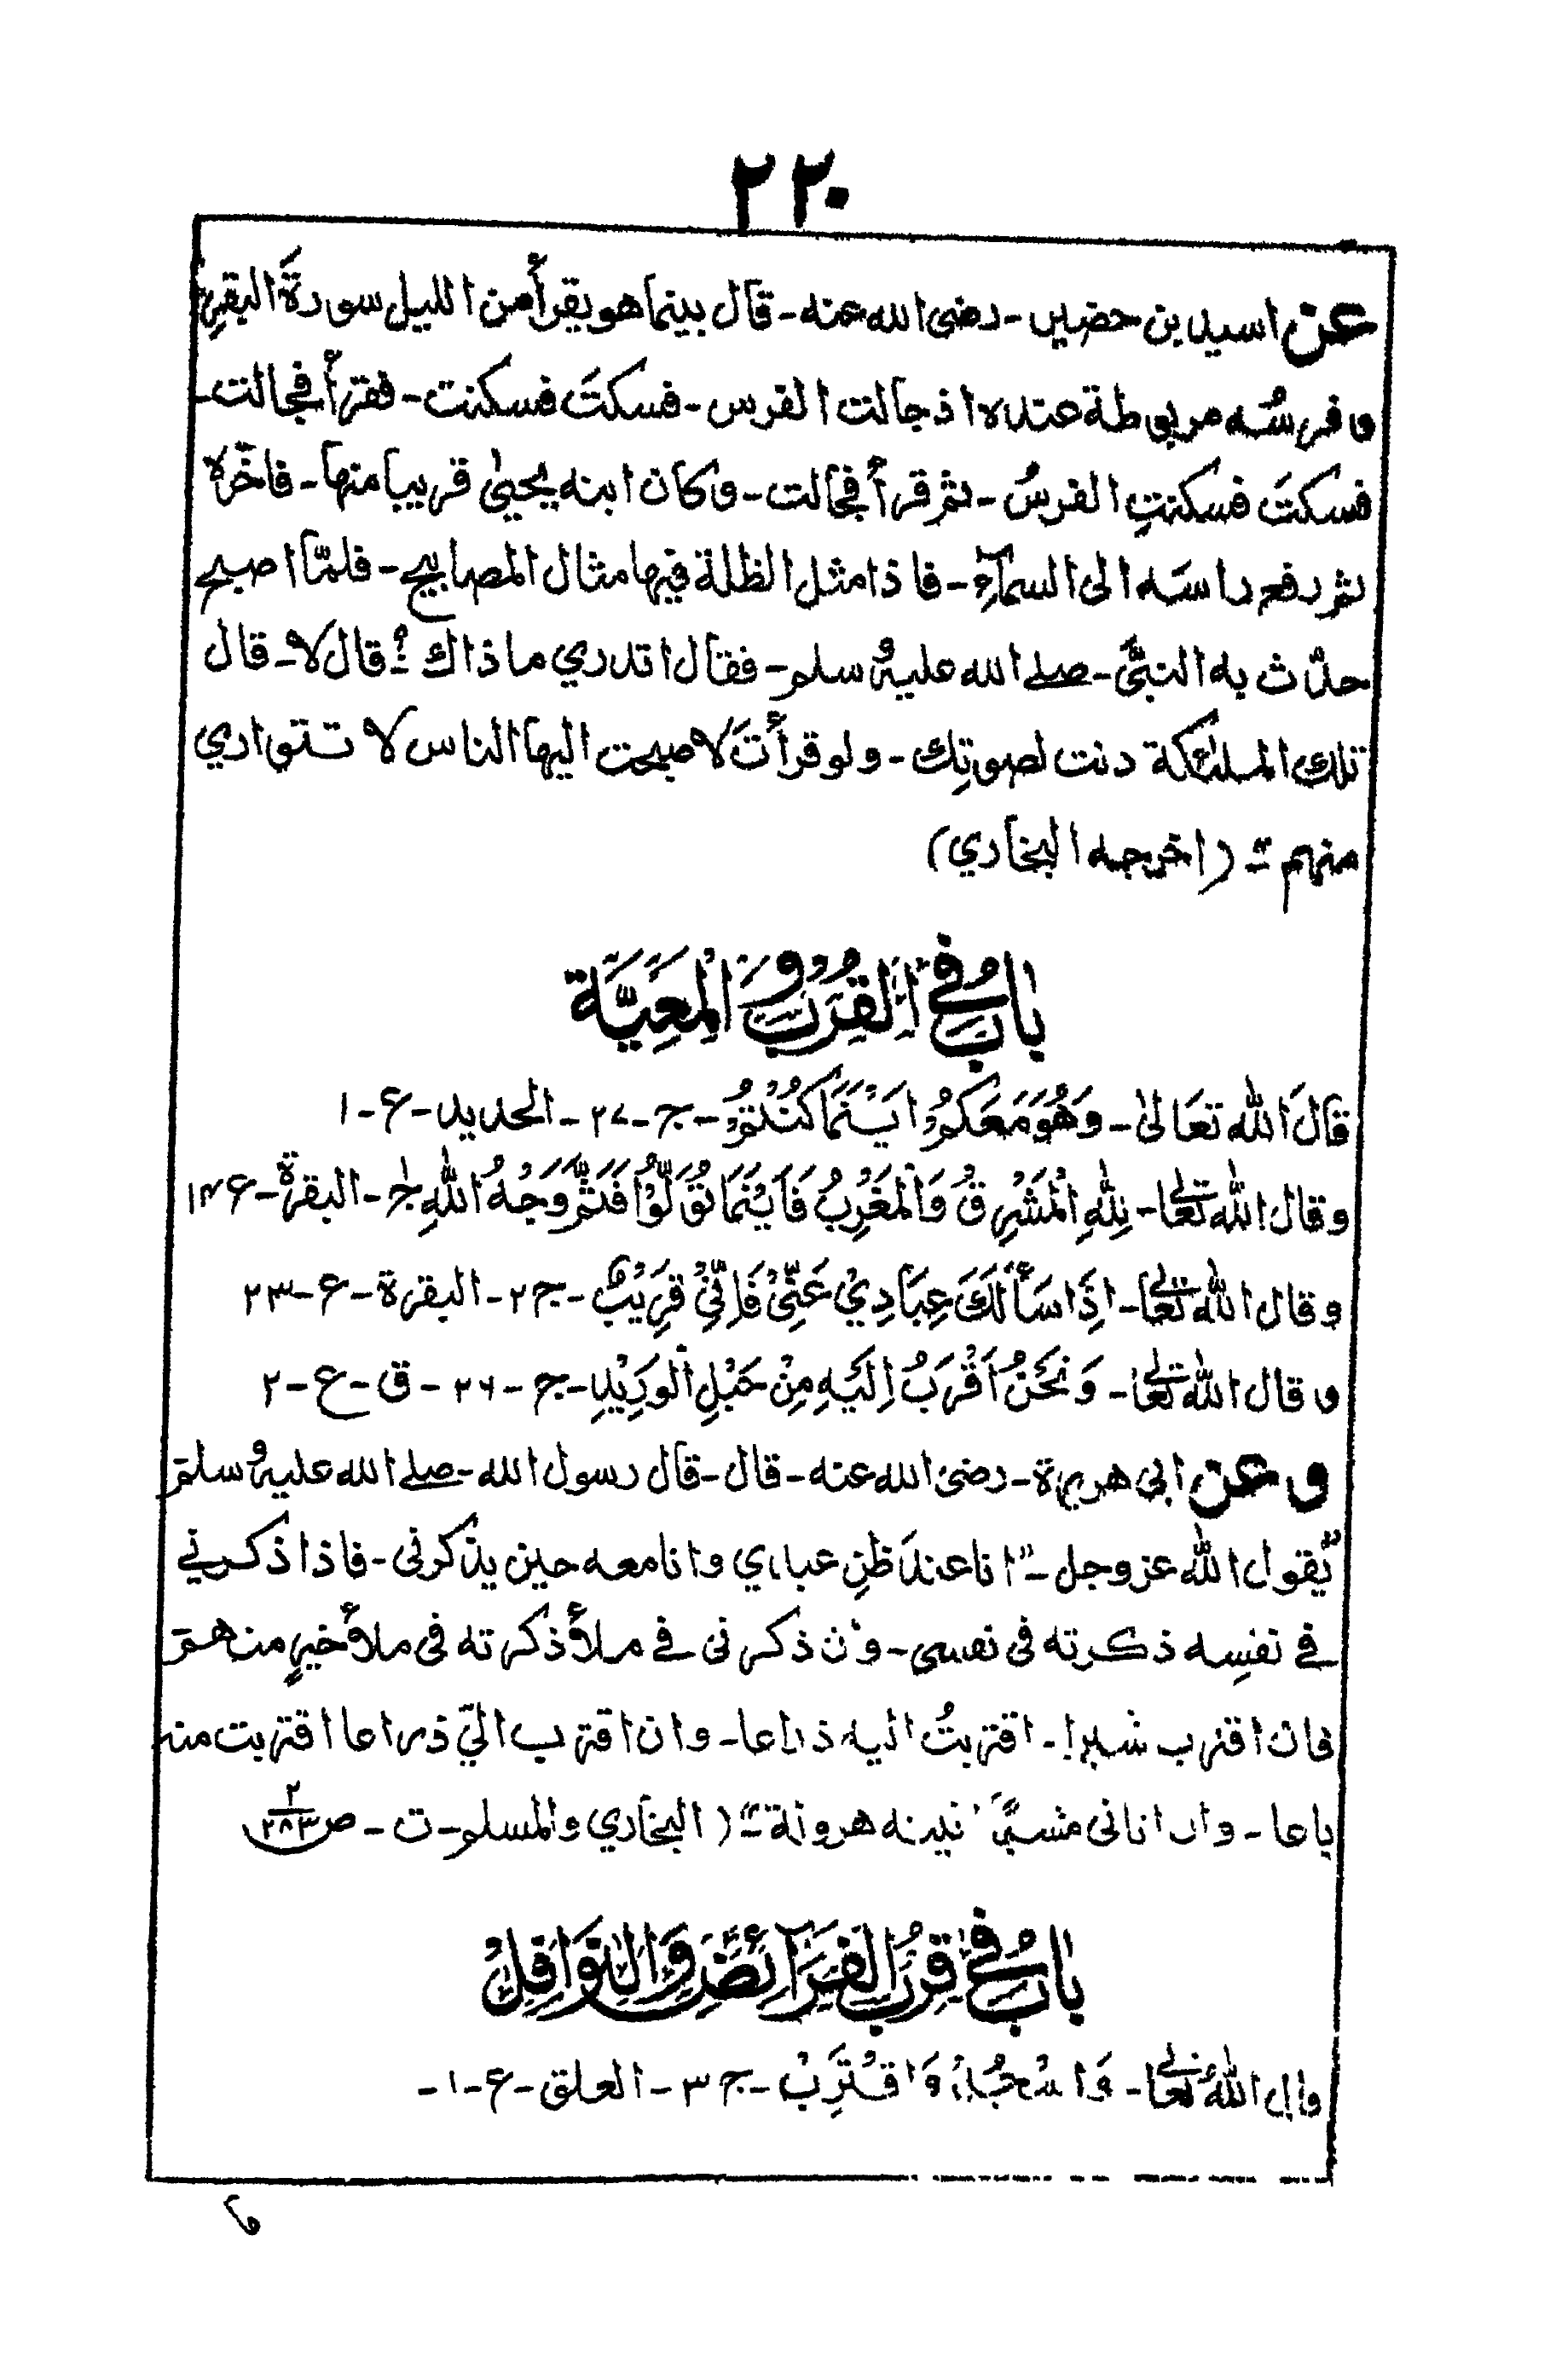 ۲۲۰
عن اسيد بن حضير - رضى الله عنه - قال بينما هو يقرأ من الليل سورةَ البقرةِ
و فرسُه مربوطة عنده اذ جالت الفرس - فسكتَ فسكنت - فقرأ فجالت -
فسكتَ فسكنتِ الفرسُ - ثم قرأ فجالت - و كان ابنه يحيىٰ قريبا منها - فاخّره
ثم رفع راسَه الى السمآءِ - فاذا مثل الظلة فيها مثال المصابيح - فلمّا اصبح
حدّث به النبىَّ - صلے الله عليه و سلم - فقال اتدري ما ذاك ؟ قال لا - قال
تلك الملئكة دنت لصوتِك - ولو قرأتَ لاصبحت اليها الناس لا تتواري
منهم" - (اخرجه البخاري)
بابُ فِی القُرْبِ وَ الْمَعِيَّة
قَالَ اللّٰه تعَالىٰ - وَهُوَ مَعَكُمْ اَيْنَمَا كُنْتُمْ - ج - ۲۷ - الحديد - ع - ۱
وقال اللّٰه تعالٰى - لِلّٰهِ الْمَشْرِقُ وَالْمَغْرِبُ فَاَيْنَمَا تُوَلُّوْا فَثَمَّ وَجْهُ اللّٰهِ ج۱ - البقرة - ع ۱۴
و قال اللّٰه تعالٰى - اِذَا سَأَلَكَ عِبَادِيْ عَنِّىْ فَاِنِّىْ قَرِيْبٌ - ج ۲ - البقرة - ع - ۲۳
و قال اللّٰه تعالٰى - وَ نَحْنُ اَقْرَبُ اِلَيْهِ مِنْ حَبْلِ الْوَرِيْدِ - ج - ۲۶ - ق - ع - ۲
و عن ابى هريرة - رضى الله عنه - قال - قال رسول الله - صلے الله عليه و سلم
"يقول اللّٰه عز وجل - "انا عندَ ظنِ عبدي و انا معه حين يذكرنى - فاذا ذكرني
في نفسِه ذكرته فى نفسى - و ن ذكرنى فے ملأ ذكرته فى ملأ خيرٍ منهم
فان اقترب شبرا - اقتربتُ اليه ذراعا - و ان اقترب اليّ ذراعا اقتربت منه
باعا - وان اتانى مشيًا تيته هرولة" - (البخاري والمسلم - ت - ص ۲/۲۸۳
بابُ فِی قُرْبِ الفَرَآئِضِ وَالنَّوَافِلْ
قال اللّٰهُ تعالٰى - وَاسْجُدْ وَاقْتَرِبْ - ج ۳ - العلق - ع - ۱ -